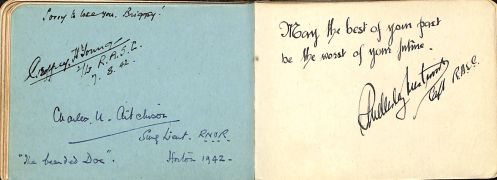 Sorry to leave you, Briggsy!
Geoffrey H Young
R.A.S.C.
7. 8. 42.
Charles U. Aitchison
Surg Lieut. RNVR.
"The bearded Doc".
Horton 1942.
May the best of your past
be the worst of your future.
Capt R.A.S.C.